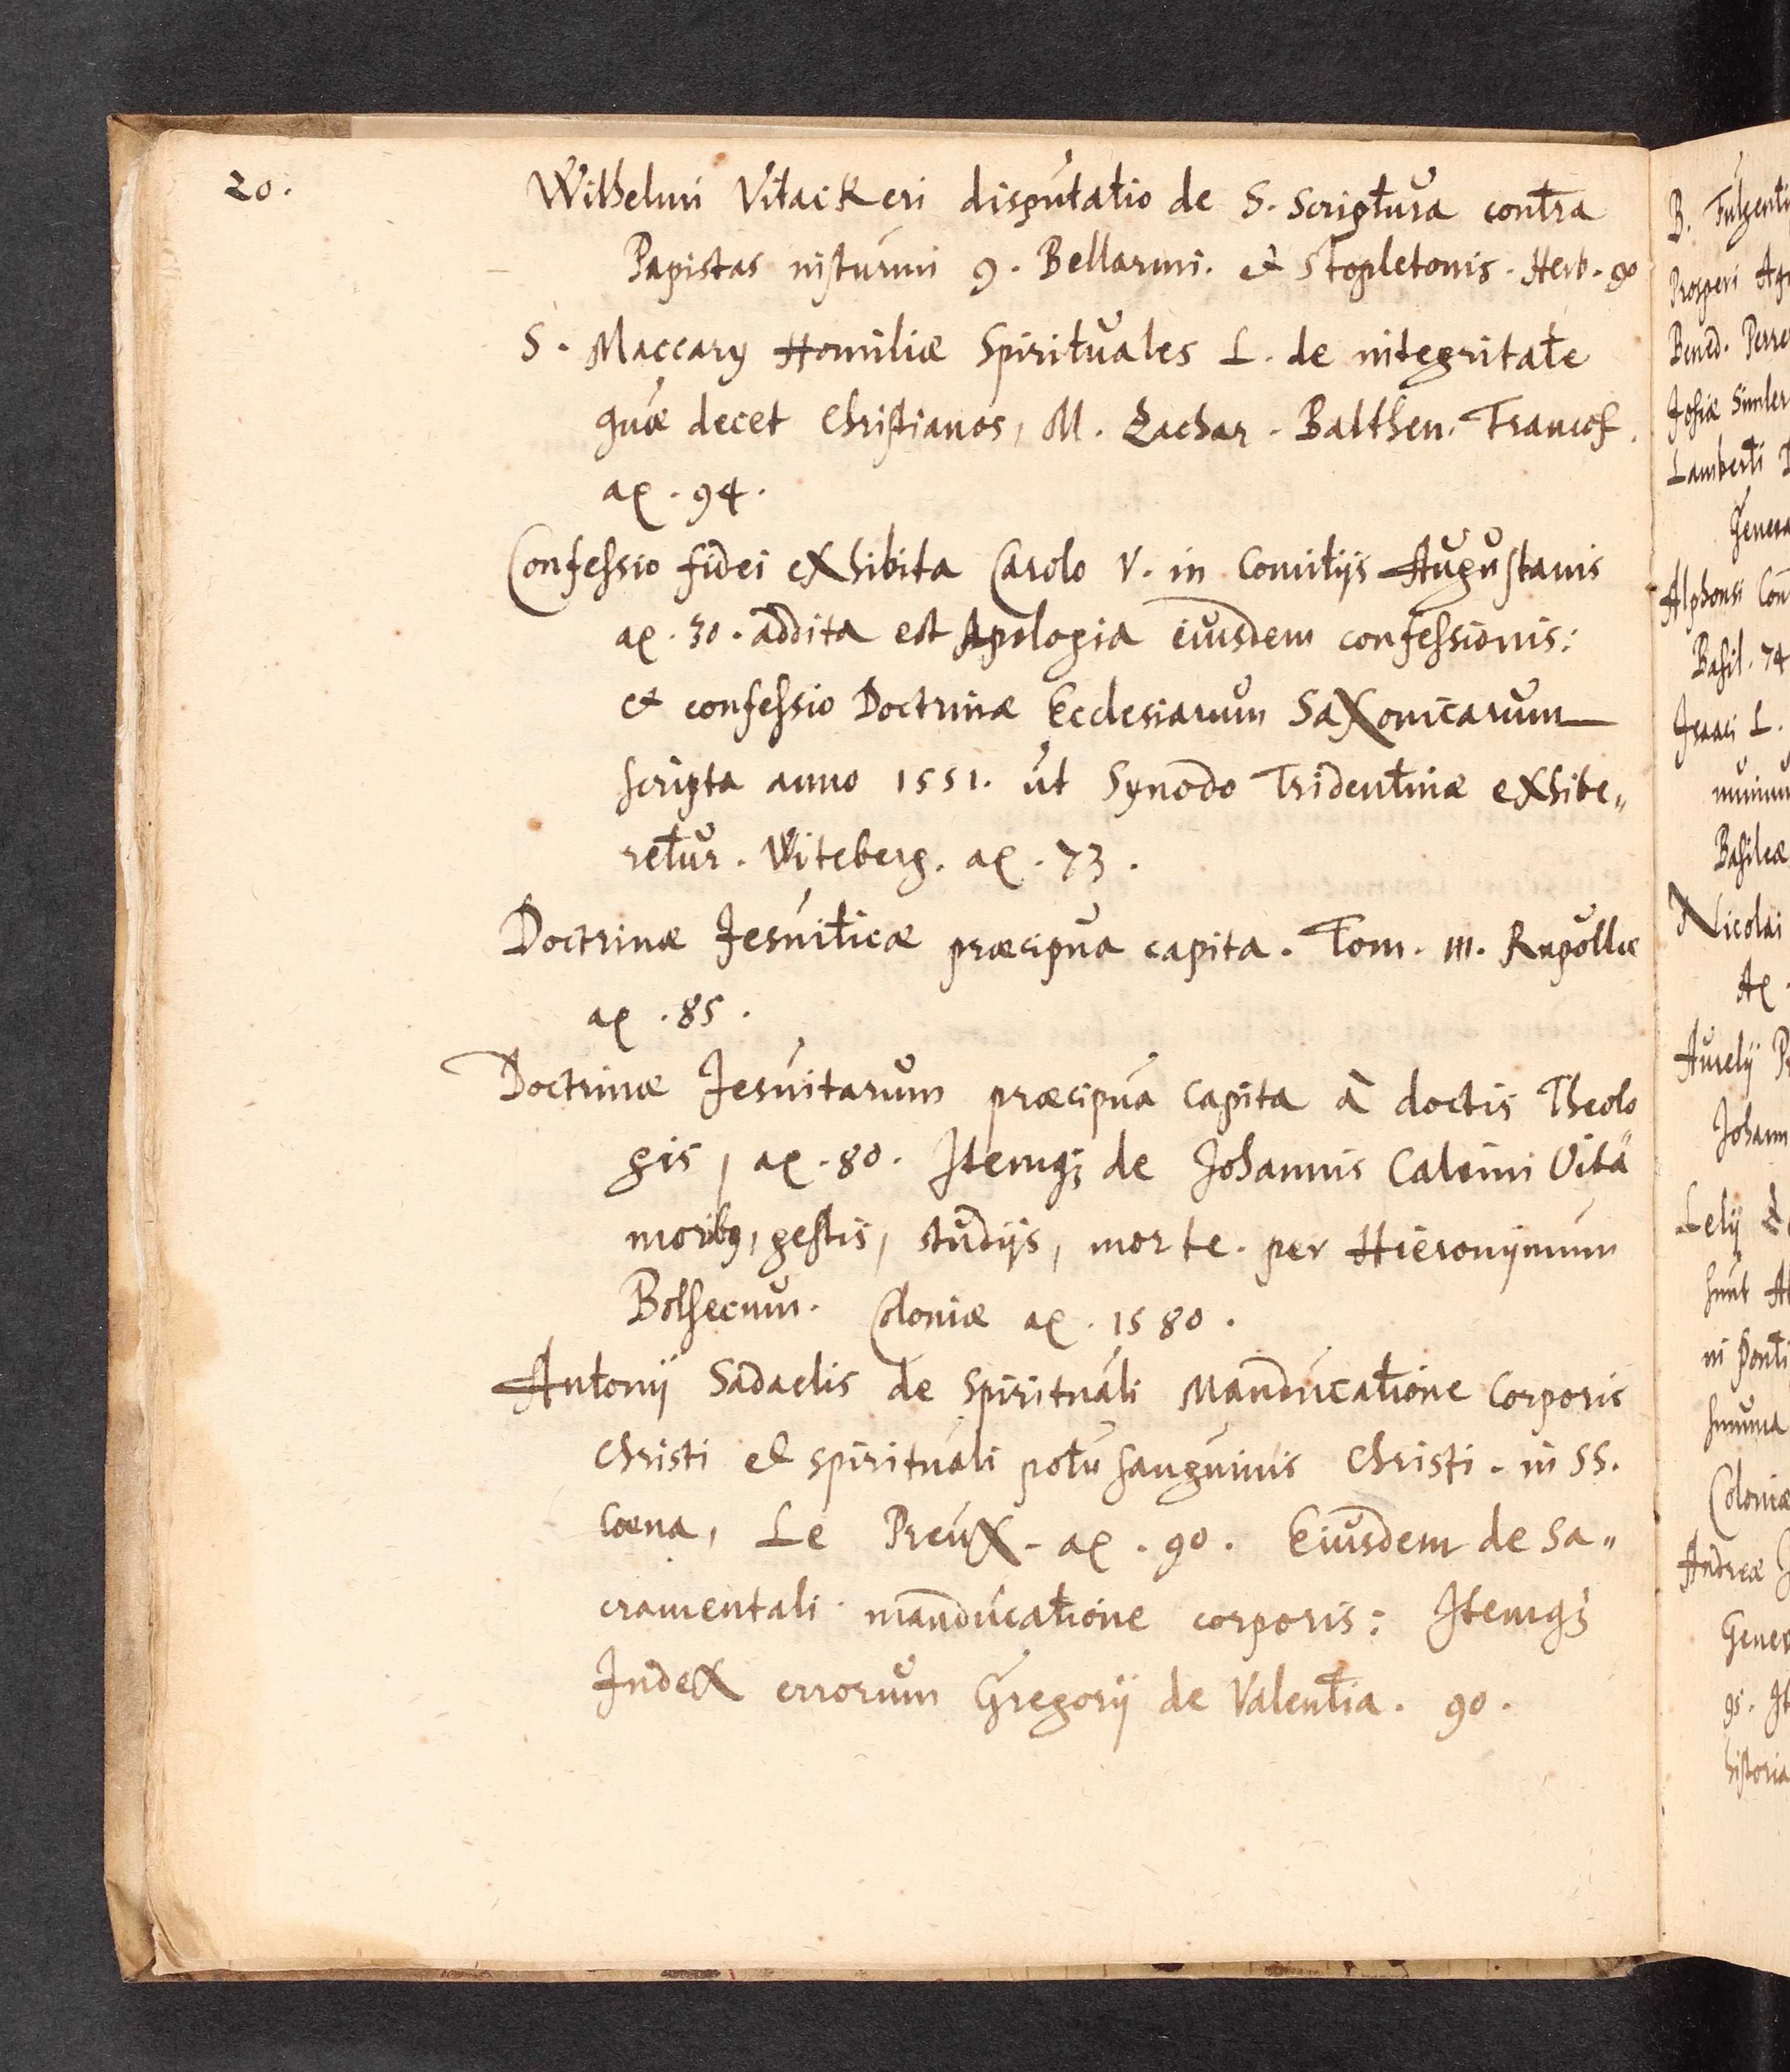 20.
Wilhelmi Vitackeri disputatio de S. Scriptura contra
Papistas nisturmi 9. Bellarmi. et Stopletonis. Herb. 90
S. Maccarÿ Homiliæ Spirituales L. de integritate
quæ decet Christianos, M. Zachar. Balthen. Francof.
ax. 94.
Confessio fidei exhibita Carolo V. in Comitijs Augustanis
ax. 30. addita est Apologia eiusdem confessionis:
et confessio Doctrinæ Ecclesiarum Saxonicarum
scripta anno 1551. ut Synodo Tridentinæ exhibe„
retur. Witeberg. ax. 73.
Doctrinæ Jesuiticæ præcipua capita. Tom. III. Rupollæ
ax. 85.
Doctrinæ Jesuitarum præcipua capita à doctis Theolo
gis, ax. 80. Itemq; de Johannis Calvini Vita
moribus, gestis, studijs, morte. per Hieronijmum
Bolsecum. Coloniæ ax. 1580.
Antonij Sadaelis de Spirituali Manducatione Corporis
Christi et spirituali potu sanguinis Christi. in SS.
Coena, Le Preux. ax. 90. Eiusdem de Sa„
cramentali manducatione corporis: Itemq;
Index errorum Gregorij de Valentia. 90.
B. Fulgenti
Prosperi
Bened.
Josiæ Simler
Lamberti
Genera
Alphonsi Con
Basil. 74
Isaaci L.
Basileæ
Nicolai
Ax.
Aurelij
Johann
Lelij
sunt
in Ponti
summa
Coloniæ
Andreæ
Genev
95. It
historia